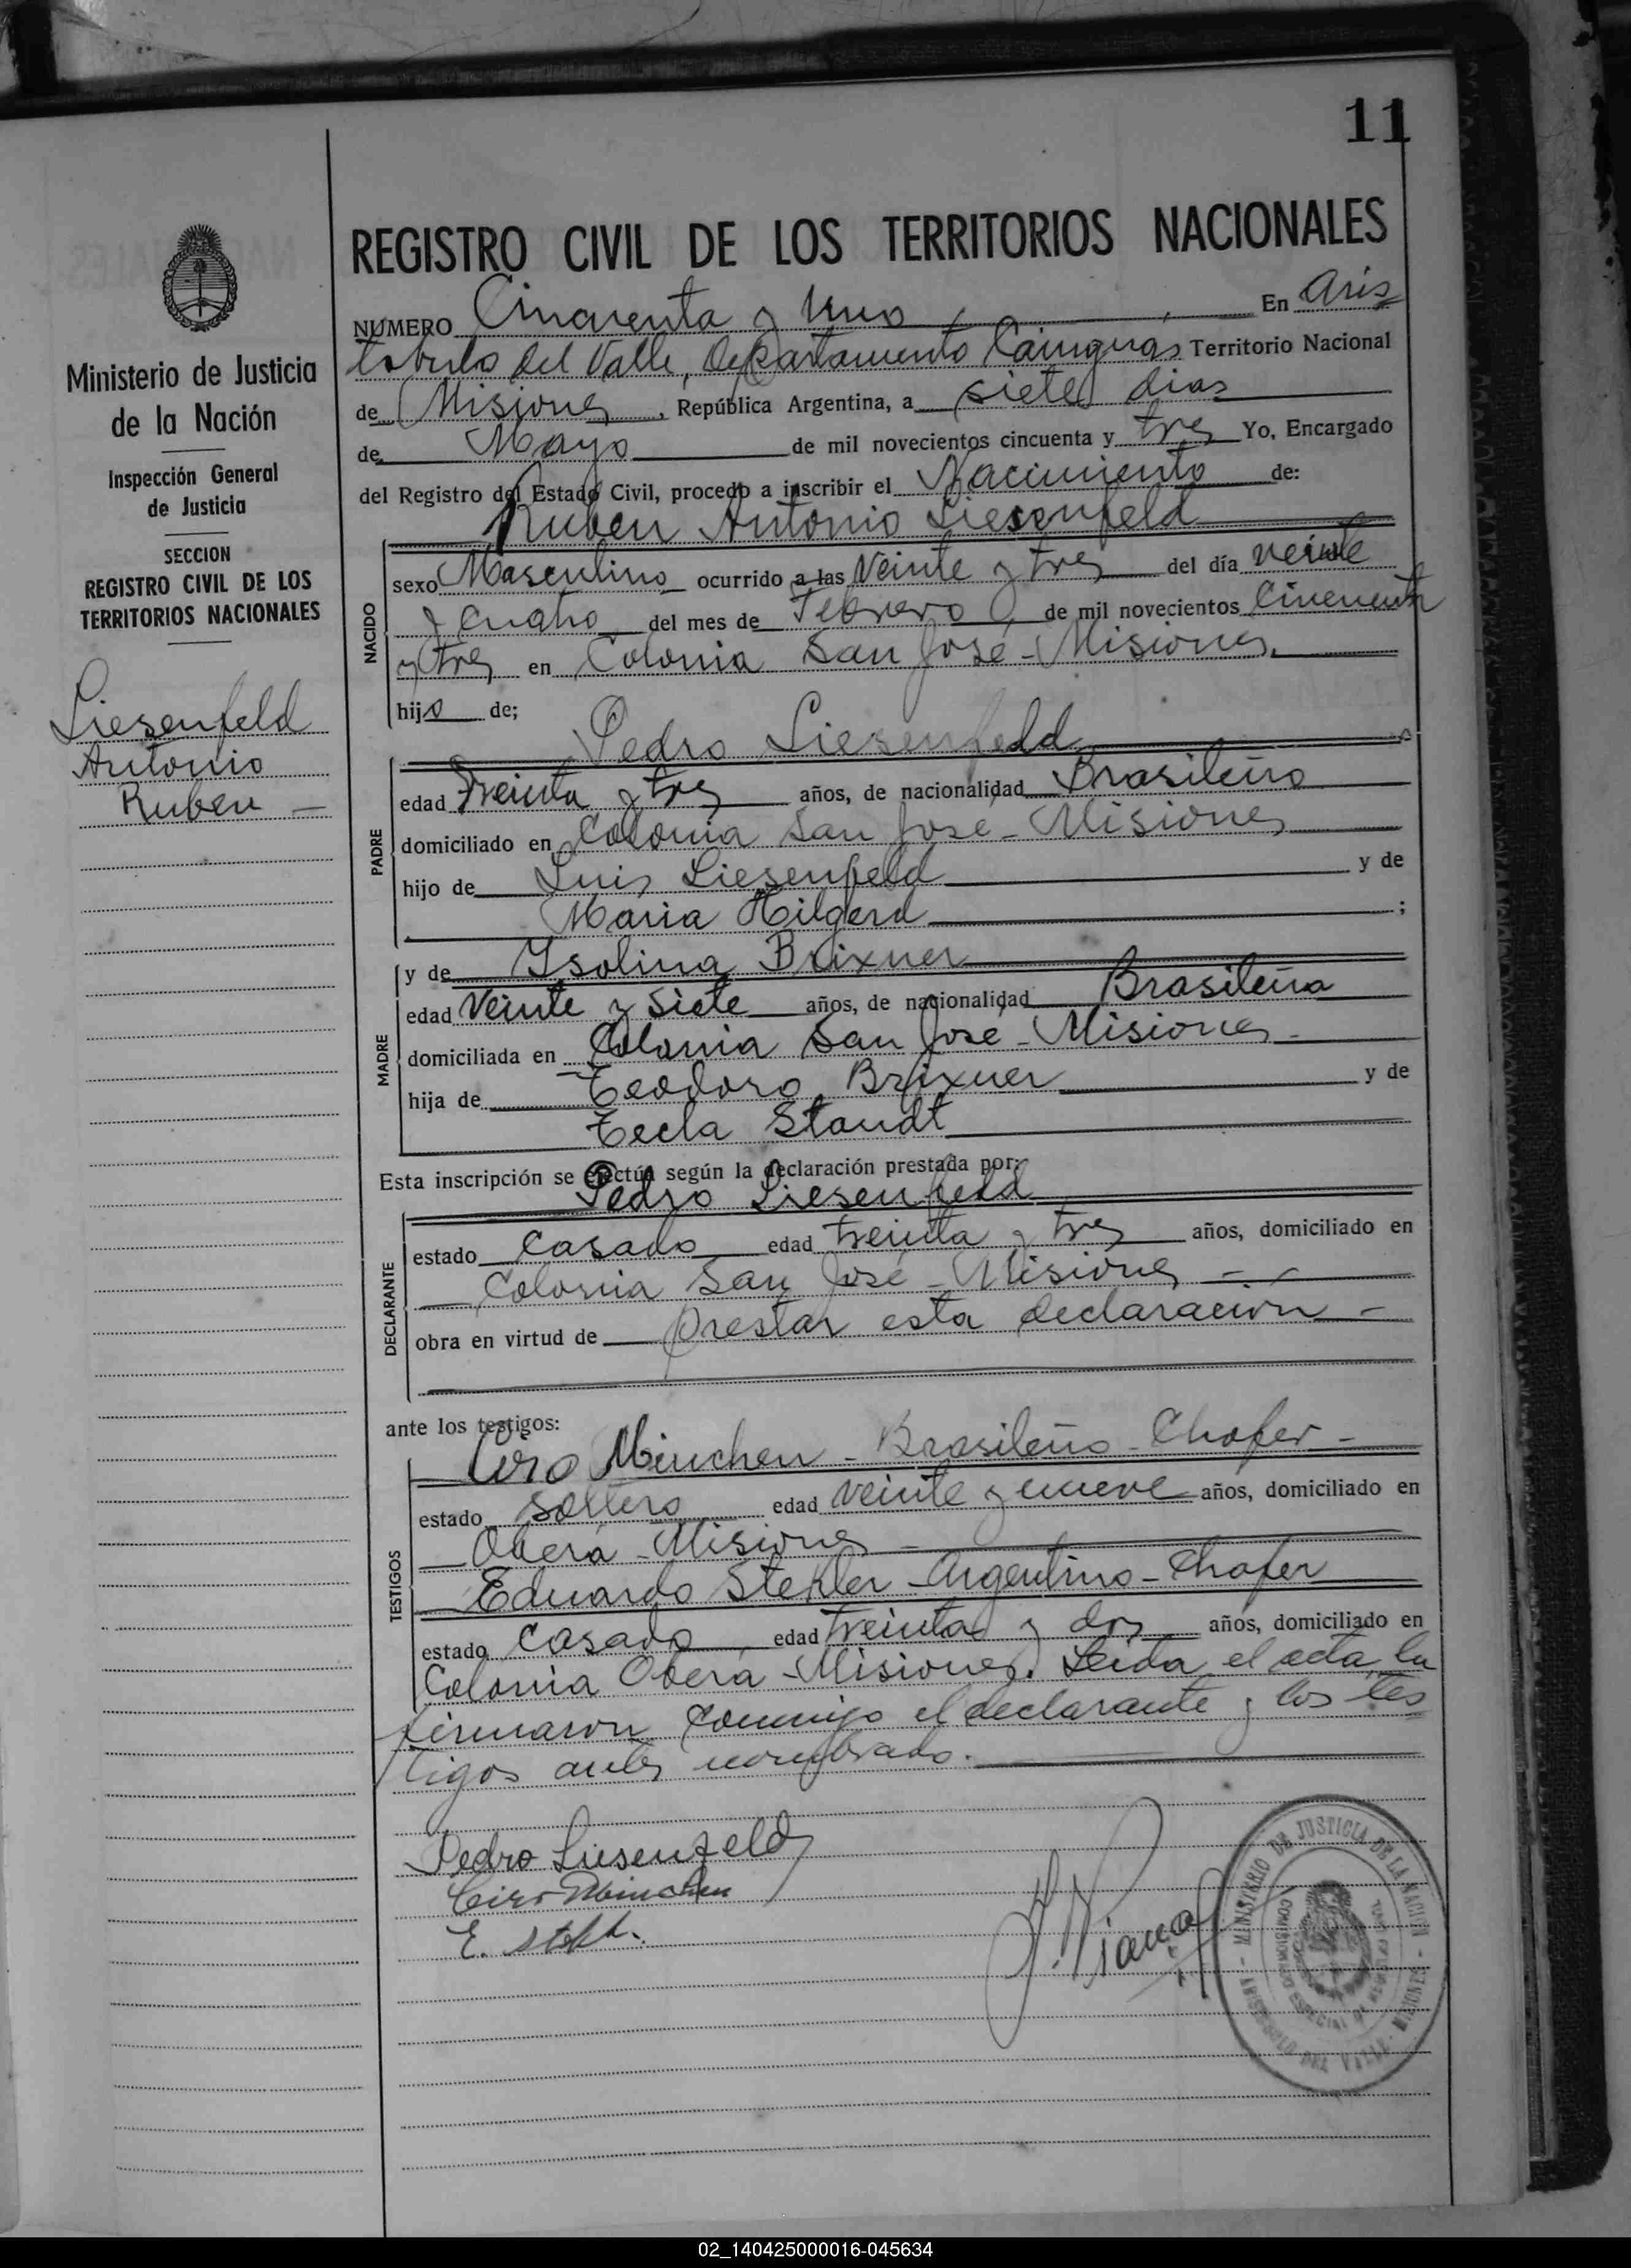 11
REGISTRO CIVIL DE LOS TERRITORIOS NACIONALES
Ministerio de Justicia
de la Nación
Inspección General
de Justicia
SECCION
REGISTRO CIVIL DE LOS
TERRITORIOS NACIONALES
Liesenfeld
Antonio
Ruben —
NUMERO Cincuenta y Uno En Aris
tobulo del Valle, Departamento Cainguás Territorio Nacional
de Misiones, República Argentina, a siete dias
de Mayo de mil novecientos cincuenta y tres Yo, Encargado
del Registro del Estado Civil, procedo a inscribir el Nacimiento de:
Ruben Antonio Liesenfeld
NACIDO
sexo Masculino ocurrido a las Veinte y tres del día veinte
y cuatro del mes de Febrero de mil novecientos Cincuenta
y tres en Colonia San José - Misiones.
hijo de;
Pedro Liesenfeld
PADRE
edad Treinta y tres años, de nacionalidad Brasileño
domiciliado en Colonia San José - Misiones
hijo de Luis Liesenfeld y de
Maria Hilgerd ;
MADRE
y de Ysolina Brixner
edad Veinte y Siete años, de nacionalidad Brasileña
domiciliada en Colonia San José - Misiones -
hija de Teodoro Brixner y de
Tecla Staudt
Esta inscripción se efectúa según la declaración prestada por:
Pedro Liesenfeld
DECLARANTE
estado Casado edad treinta y tres años, domiciliado en
Colonia San José - Misiones - -
obra en virtud de prestar esta declaracion -
ante los testigos:
TESTIGOS
Ciro Minchen - Brasileño - Chofer -
estado Soltero edad veinte y nueve años, domiciliado en
Oberá - Misiones -
Eduardo Stekler - Argentino - Chofer
estado Casado edad treinta y dos años, domiciliado en
Colonia Oberá - Misiones. Leida el acta, la
firmaron conmigo el declarante y los tes
tigos antes nombrado.
Pedro Liesenfeld
Ciro Minchen
MINISTERIO DE JUSTICIA DE LA NACION
ARISTOBULO DEL VALLE - MISIONES
02_140425000016-045634